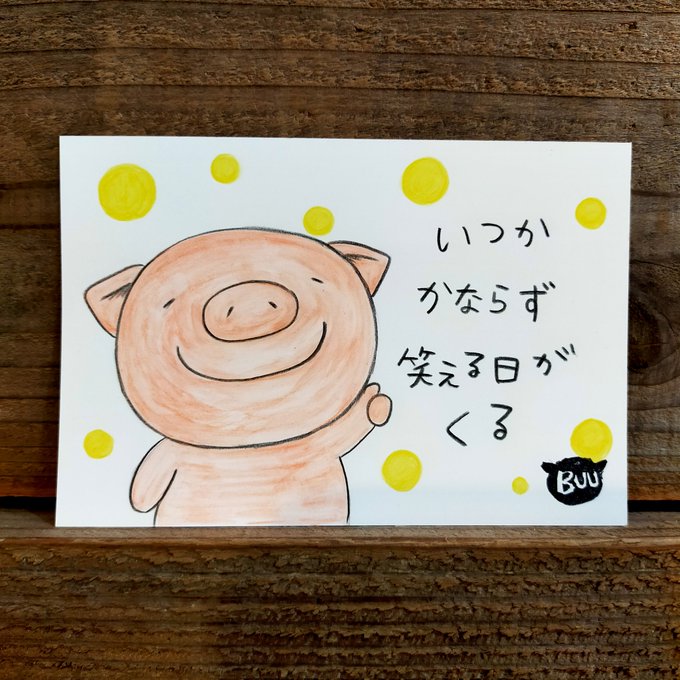 いつか
かならず
笑える日が
くる
BUU